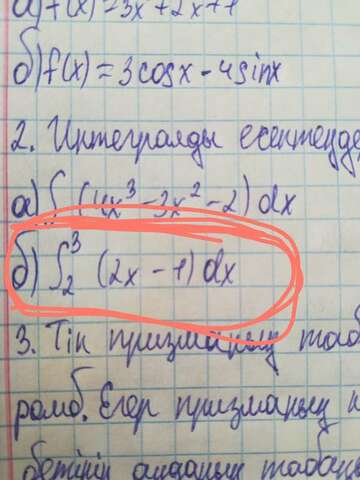 а) f(x) = 3x + 2x + 1
б) f(x) = 3cosx - 4sinx
2. Интегралды есептеңдер
а) ∫ (4x³ - 3x² - 2) dx
б) ∫₂³ (2x - 1) dx
3. Тік призманың таб
ромб. Егер призманың
бетінің ауданын табың